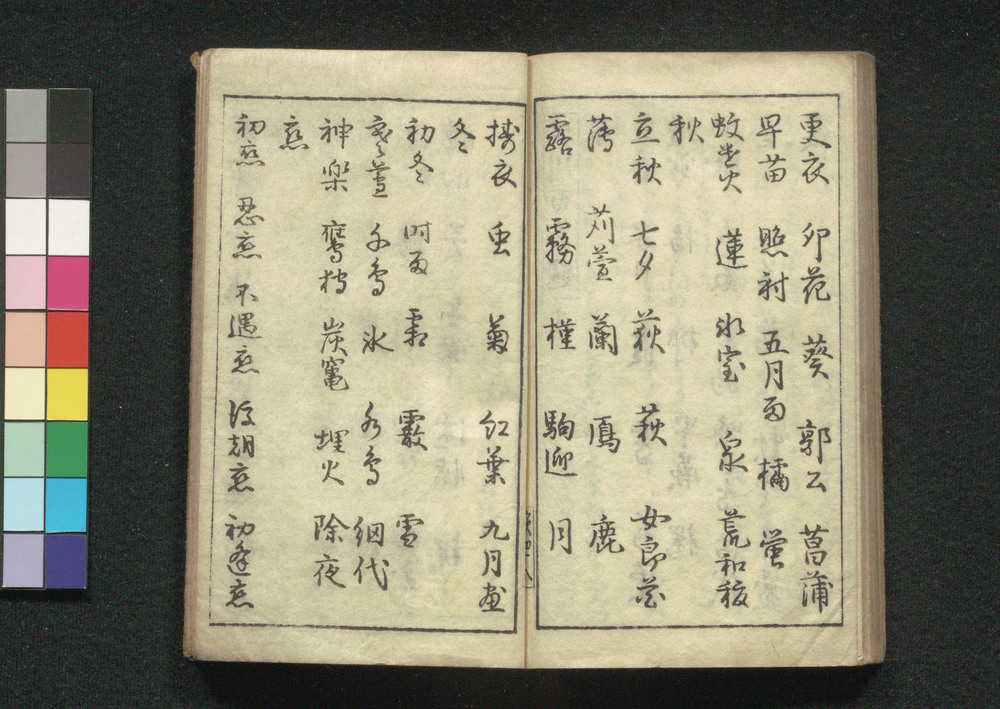 更衣 卯花 葵 郭公 菖蒲
早苗 照射 五月雨 橘 蛍
蚊遣火 蓮 氷室 泉 荒和祓
秋
立秋 七夕 荻 萩 女郎花
薄 苅萱 蘭 鴈 鹿
露 霧 槿 駒迎 月
擣衣 虫 菊 紅葉 九月尽
冬
初冬 時雨 霜 霰 雪
寒蘆 千鳥 氷 水鳥 網代
神楽 鷹狩 炭竃 埋火 除夜
恋
初恋 忍恋 不遇恋 後朝恋 初逢恋